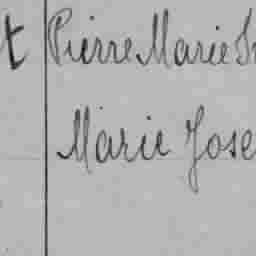 t Pierre Marie
Marie Jose